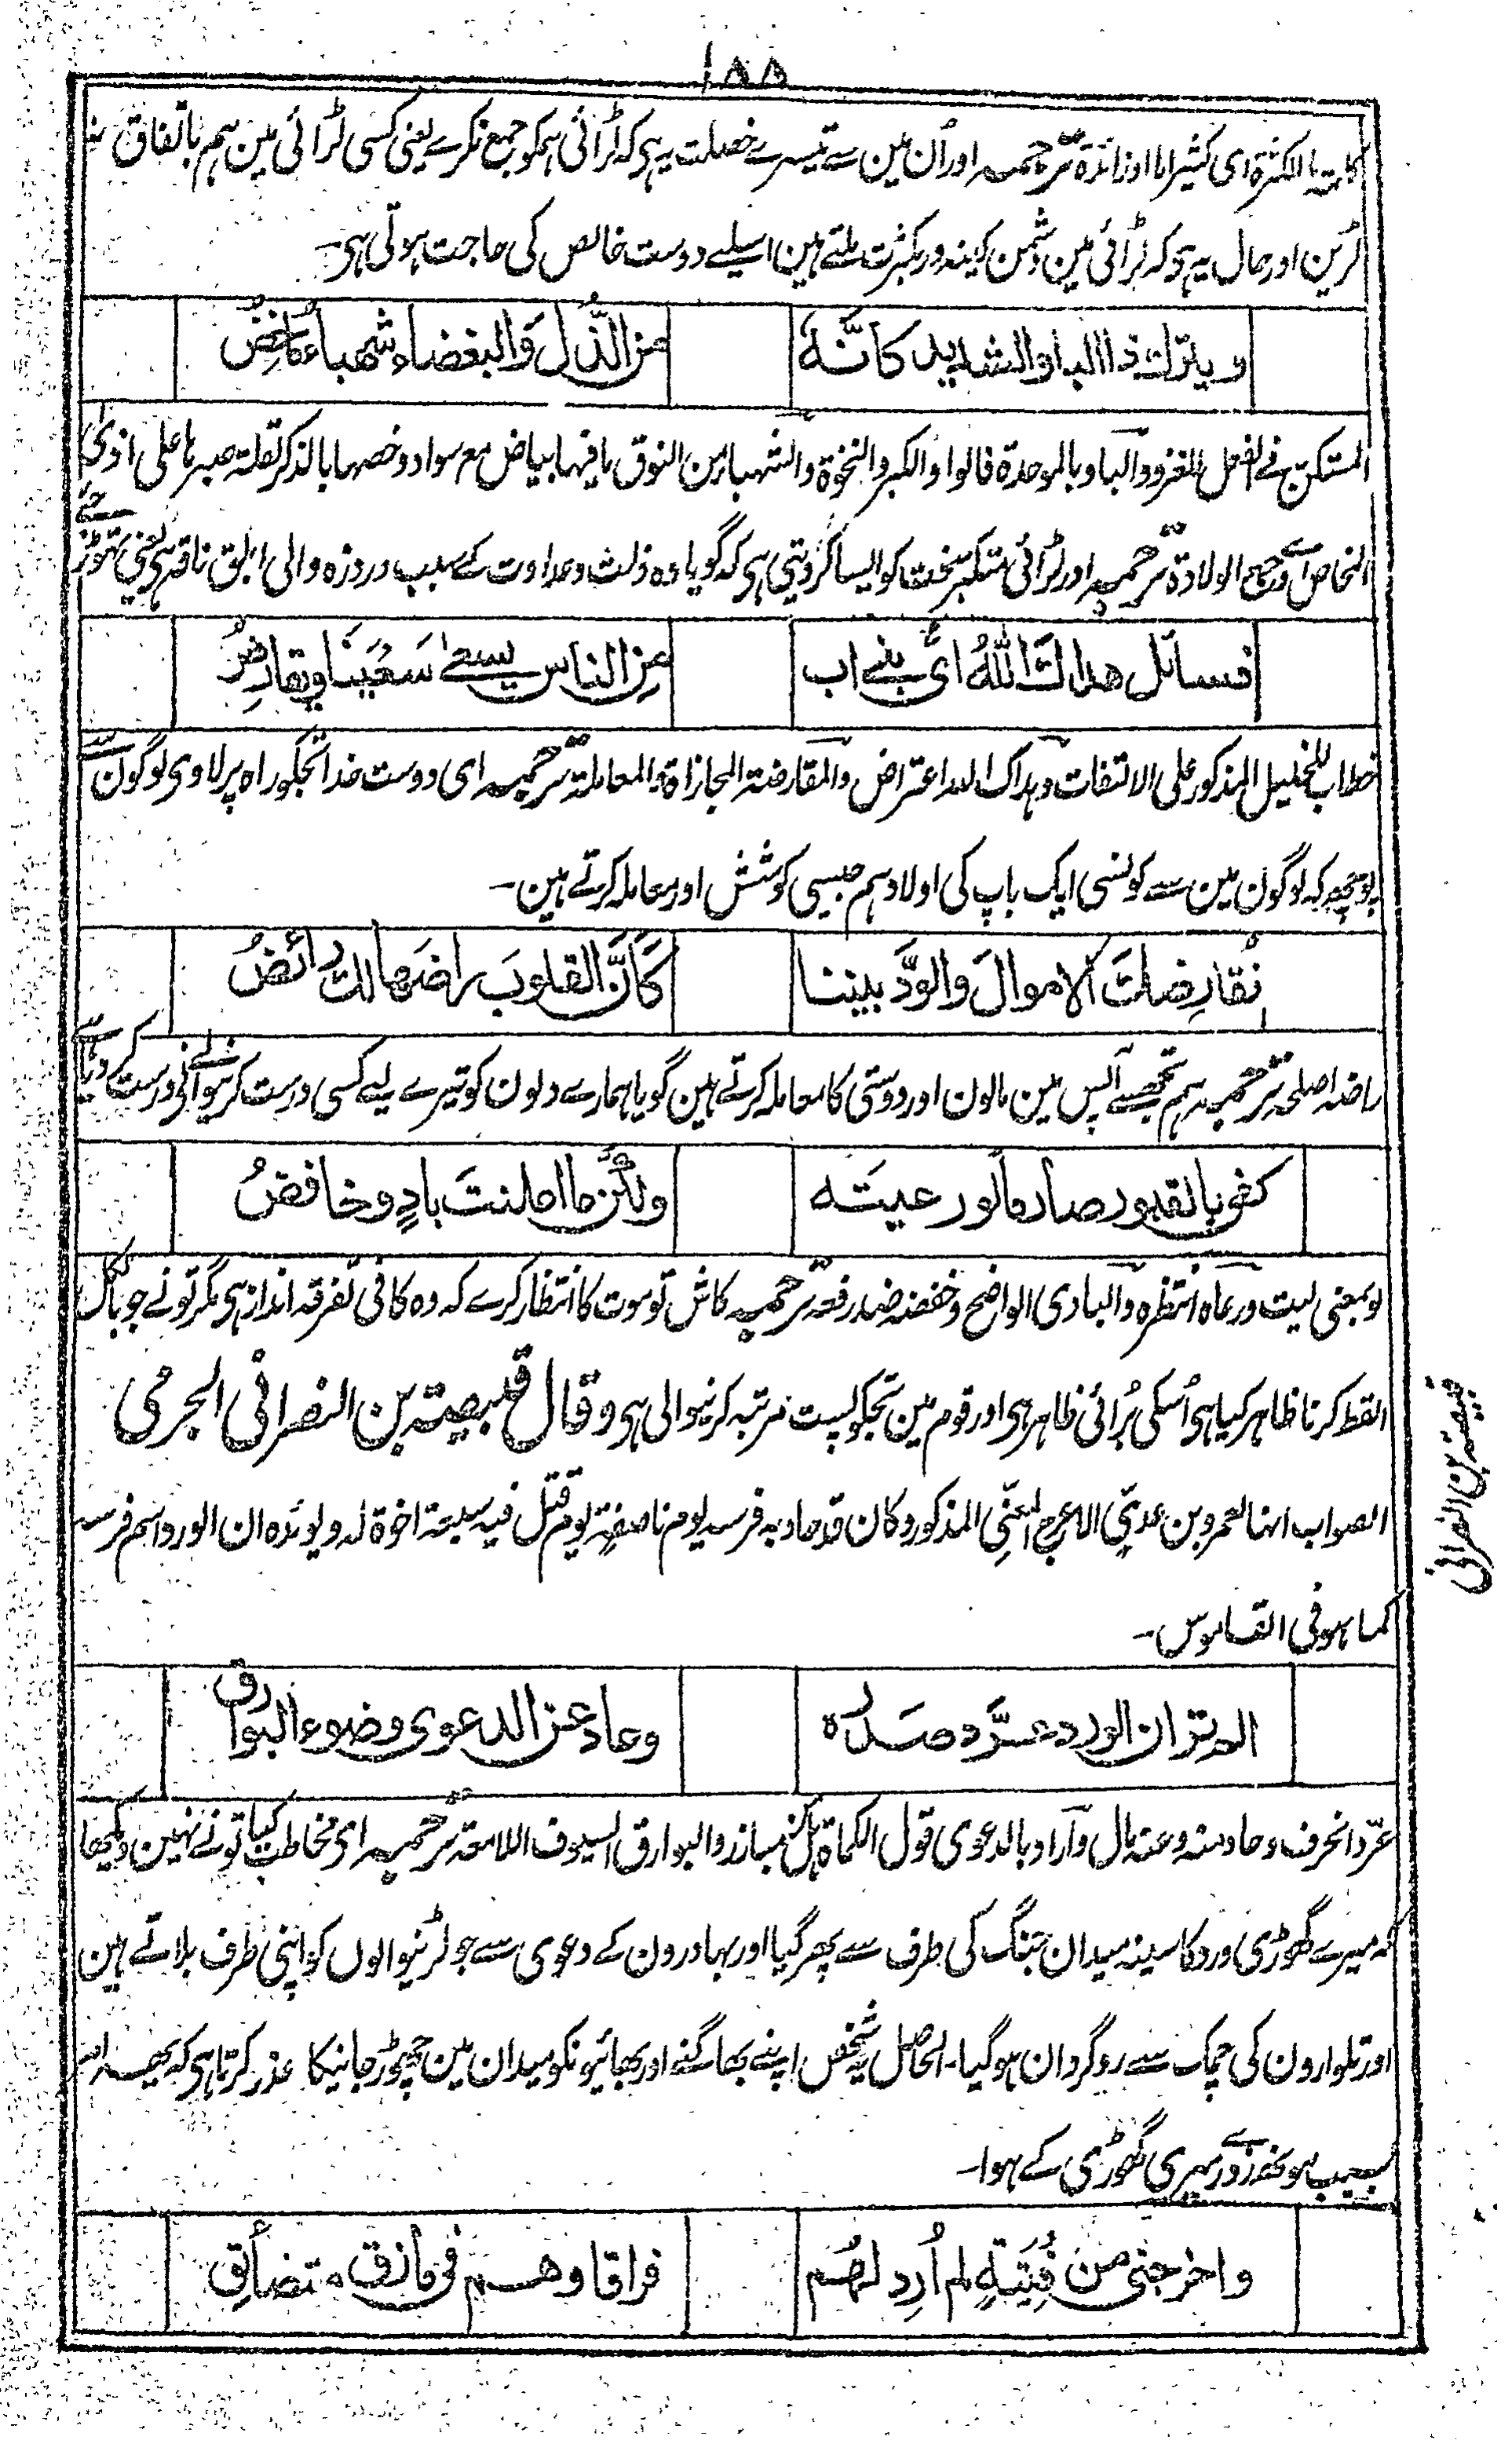 ۱۵۵
بالكثرة اى كثيرا ما او زائدة ترجمہ اور اُن مین سے تیسرے خصلت یہ ہی کہ لڑائی ہمکو جمع نکرے یعنی کسی لڑائی مین ہم باتفاق
لڑین اور حال یہ ہی کہ لڑائی مین دشمن کینہ ور بکثرت ملتے ہین اسلیے دوست خالص کی حاجت ہوتی ہی۔
ويترك ذا الباو الشديد كانَّهٗ من الذُّل وَالبغضاء شهباء ماخضُ
المستكن فى الفعل للغزو والباو بالموحدة فالواو الكبر والنخوة والشهباء من النوق ما فيها بياض مع سواد وخصها بالذكر لقلة صبرها على اذى
المخاض اے وجع الولادة ترجمہ اور لڑائی متکبر سخت کو ایسا کردیتی ہی کہ گویا وہ ذلت وعداوت کے سبب دردزہ والی ابلق ناقہ ہی یعنی
فسائل هداك اللهُ اىُّ بنے اب من الناس يسعے سَعْيَنَا ويقارضُ
خطاب للخليل المذكور على الالتفات وہداك الله اعتراض والمقارضة المجازاة والمعاملة ترجمہ ای دوست خدا تجکو راہ پر لاوی لوگون سے
پوچھ کہ لوگون مین سے کونسی ایک باپ کی اولاد ہم جیسی کوشش اور معاملہ کرتے ہین۔
نُقارِضكَ الاموالَ والوُدَّ بيننا كَاَنَّ القلوبَ راضَها لك رائضُ
راضہ اصلحہ ترجمہ ہم تجھسے آپس مین مالون اور دوستی کا معاملہ کرتے ہین گویا ہمارے دلون کو تیرے لیے کسی درست کرنیوالے نے درست کر دیا ہے
كفى بالقبور صارما لو رعيتَه ولكن ما اعلنتَ بادٍ وخافضُ
لو بمعنى ليت ورعاه انتظره والبادى الواضح وخفضه ضد رفعه ترجمہ کاش تو موت کا انتظار کرے کہ وہ کافی تفرقہ انداز ہی مگر تو نے جو
القط کرنا ظاہر کیا ہی اُسکی بُرائی ظاہر ہی اور قوم مین تجکو پست مرتبہ کرنیوالی ہی وقال قبيصة بن النصرانى الجرمى
الصواب انها لعمرو بن عدىّ الاعرج المعنّى المذكور وكان قد حاد به فرسه يوم ناصفة يوم قتل فيه سبعة اخوة له ويؤيده ان الورد اسم فرسه
كما هو فى القاموس۔
الم تر ان الورد عرَّد صدرُه وعاد عن الدعوى وضوء البوارق
عرّد انحرف وحاد منه وعنه مال واراد بالدعوى قول الكماة هل من مبارز والبوارق السيوف اللامعة ترجمہ ای مخاطب کیا تو نے نہین دیکھا
کہ میرے گھوڑی ورد کا سینہ میدان جنگ کی طرف سے پھر گیا اور بہادرون کے دعوی سے جو لڑنیوالوں کو اپنی طرف بلاتے ہین
اور تلوارون کی چمک سے روگردان ہو گیا۔ الحاصل یہ شخص اپنے بھاگنے اور بھائیونکو میدان مین چھوڑ جانیکا عذر کرتا ہی کہ یہ
بسبب مونھ زور میری گھوڑی کے ہوا۔
واخرجنى من فِتيَةٍ لم اُرِد لهُم فراقا وهم فى مازق متضائق
قبیصتہ بن النصرانی